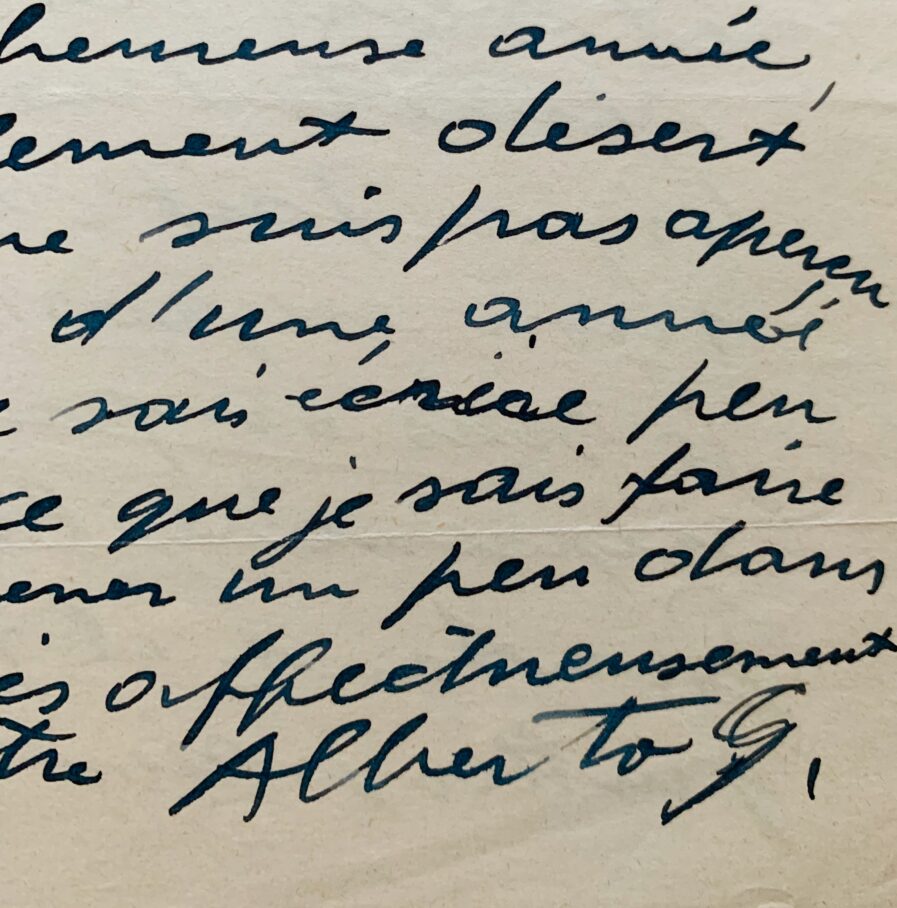 heureuse année,
lement désert
ne suis pas aperçu
d'une année
sais écrire peu
ce que je sais faire
ener un peu dans
ès affectueusement
tre Alberto G.